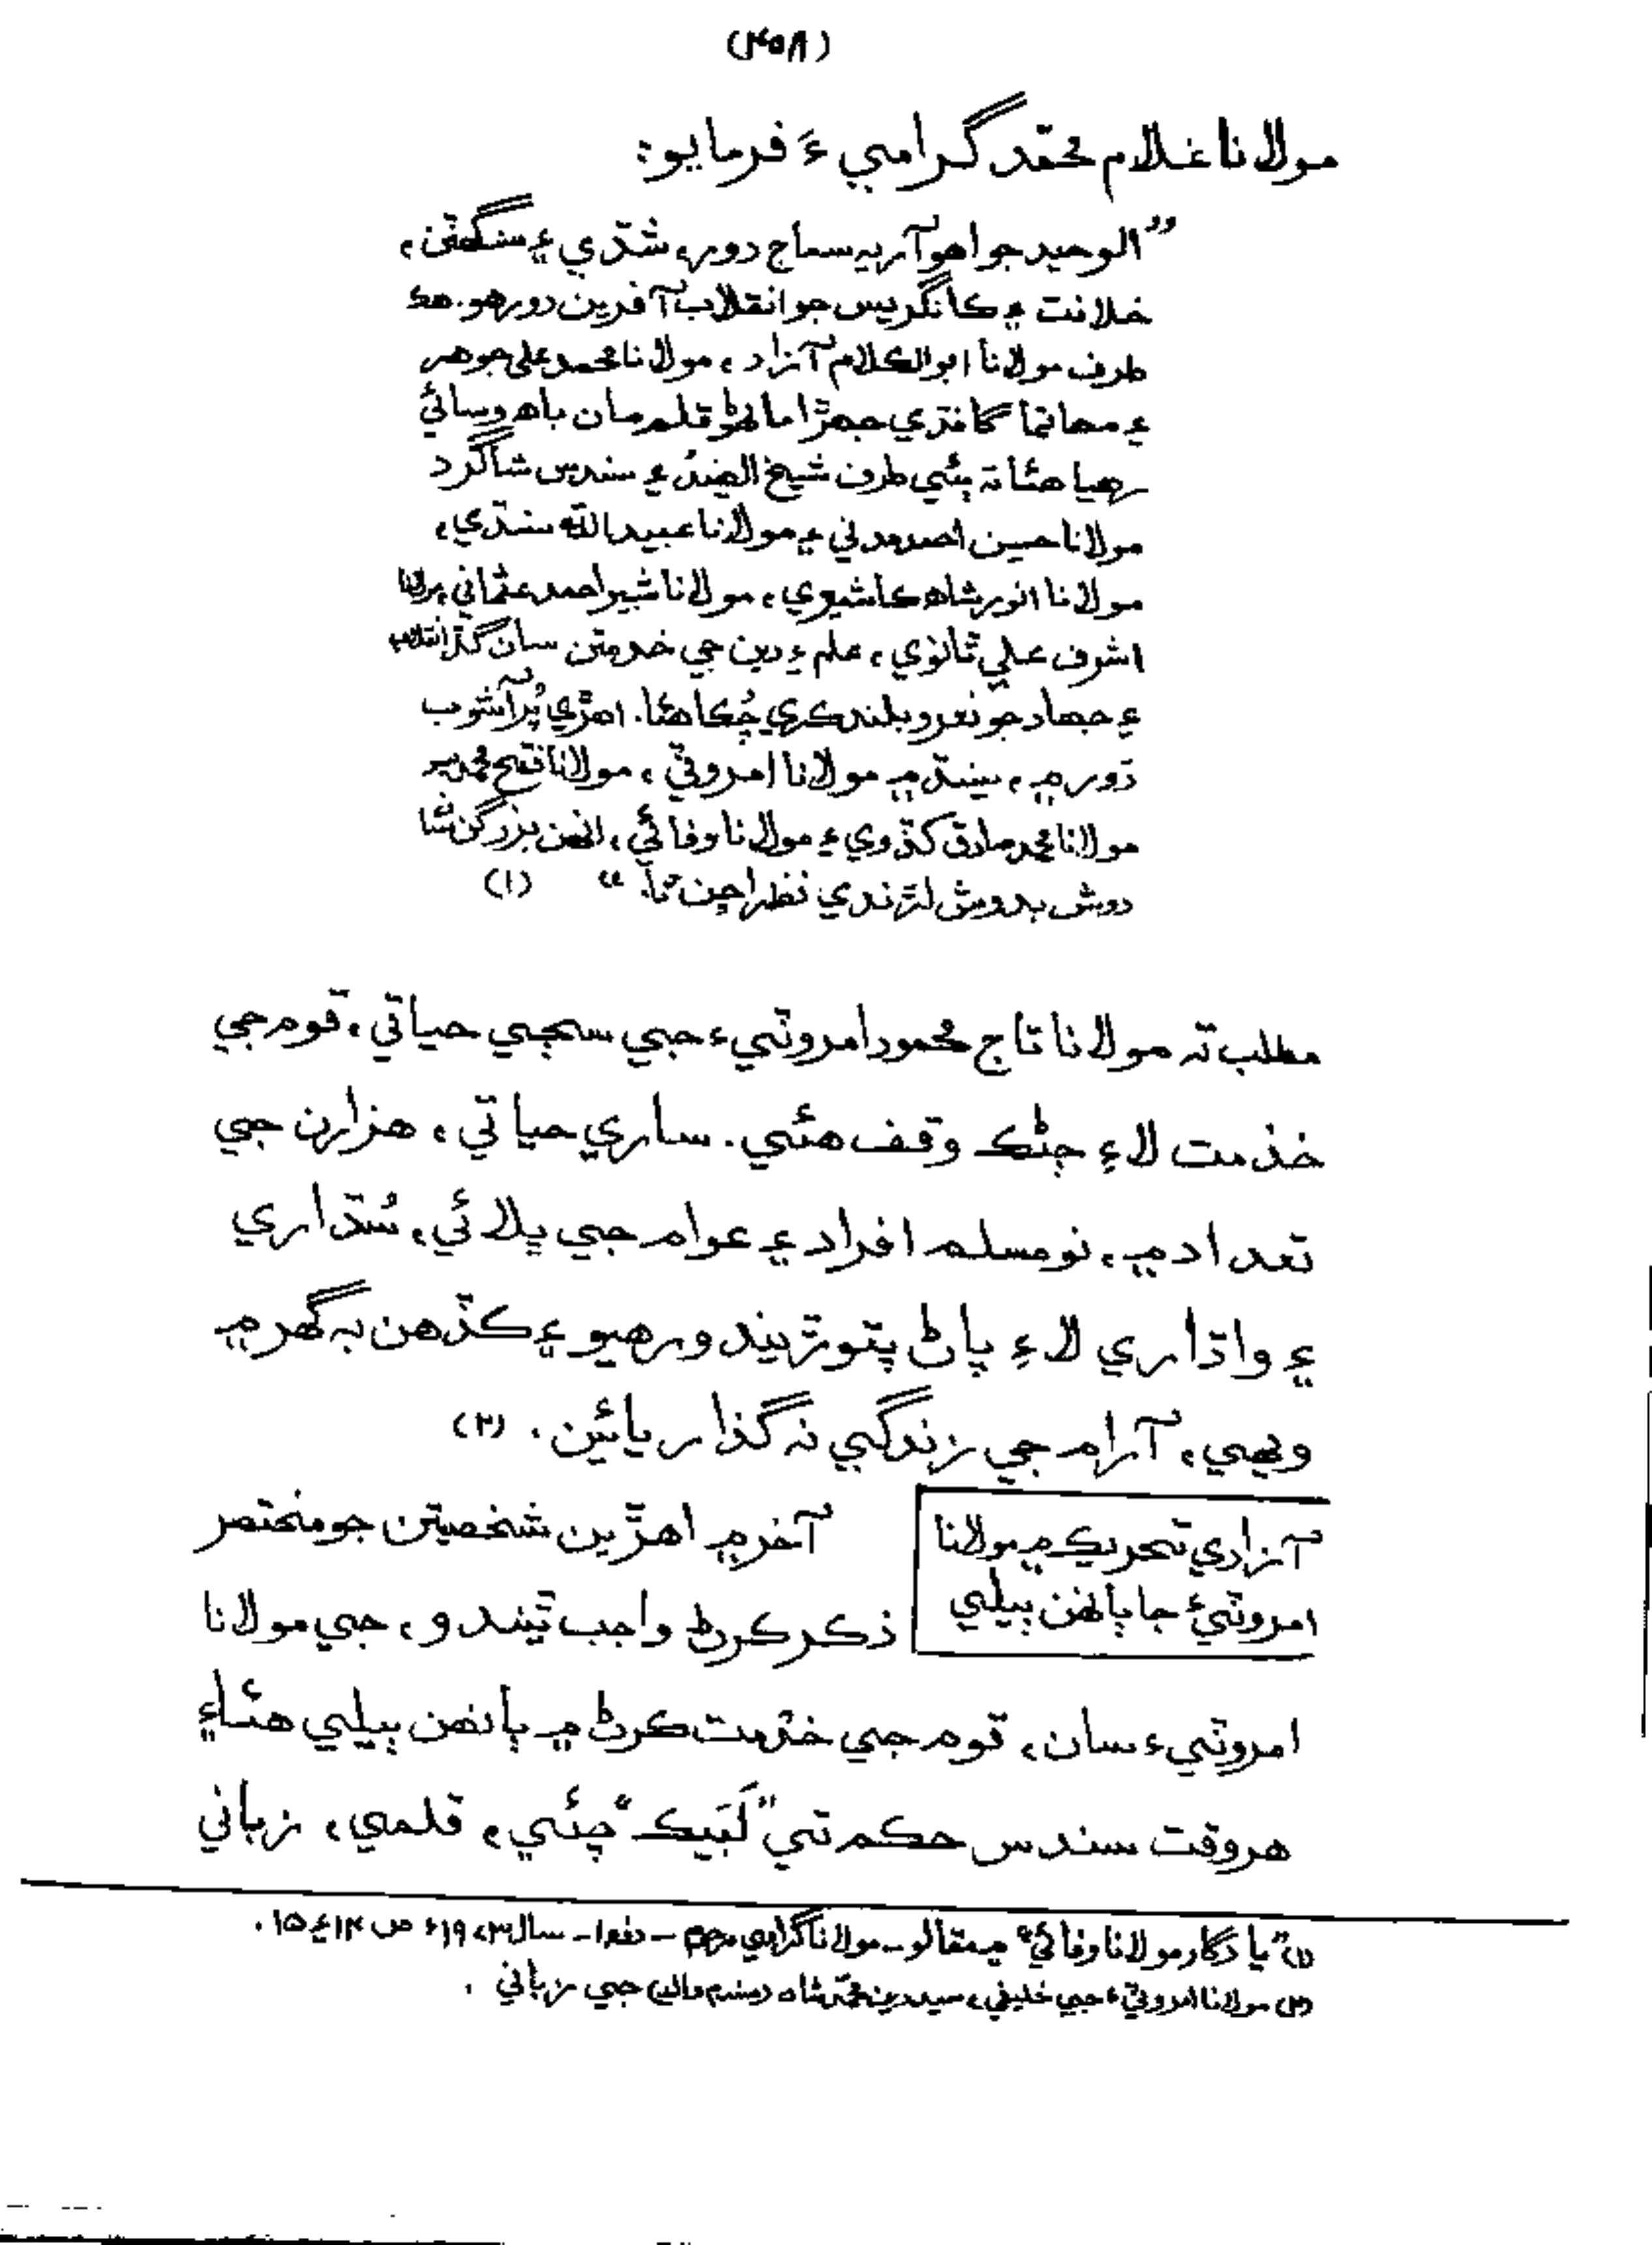 (٤٥٨)
مولانا غلام محمّد گرامي ءَ فرمايو:
”الوحيد جو اهو آريہ سماج دور، شڌي ۽ سنگهٽن،
خلافت ۽ ڪانگريس جو انقلاب آفرين دور هو. هڪ
طرف مولانا ابوالڪلام آزاد، مولانا محمد علي جوهر
۽ مهاتما گانڌي جهڙا ماڻهو قلم مان باهه وسائي
رهيا هئا تہ ٻئي طرف شيخ الهندؒ ۽ سندس شاگرد
مولانا حسين احمد مدني ۽ مولانا عبيدالله سنڌي،
مولانا انور شاهه ڪاشميري، مولانا شبير احمد عثماني، مولانا
اشرف علي ٿانوي، علم ۽ دين جي خدمتن سان گڏ انقلاب
۽ جهاد جو نعرو بلند ڪري چُڪا هئا. اهڙي پُر آشوب
دور ۾، سنڌ ۾ مولانا امروٽي، مولانا فتح محمد
مولانا محمد صادق کڏوي ۽ مولانا وفائي، انهن بزرگن شا
دوش بدوش لڙندي نظر اچن ٿا.“ (١)
مطلب تہ مولانا تاج محمود امروٽيء جي سڄي حياتي، قوم جي
خدمت لاءِ ڄڻڪ وقف هئي. ساري حياتي، هزارن جي
تعداد ۾، نومسلم افراد ۽ عوام جي ڀلائي، سُڌاري
۽ واڌاري لاءِ پاڻ پتوڙيندو رهيو ۽ ڪڏهن بہ گهر ۾
ويهي، آرام جي زندگي نہ گذاريائين. (٢)
آزادي تحريڪ ۾ مولانا
امروٽيءَ جا ٻانهن ٻيلي
آخر ۾ اهڙين شخصيتن جو مختصر
ذڪر ڪرڻ واجب ٿيندو، جي مولانا
امروٽيء سان، قوم جي خدمت ڪرڻ ۾ ٻانهن ٻيلي هئا ۽
هر وقت سندس حڪم تي ”لَبَيڪ“ چئي، قلمي، زباني
(١) ”يادگار مولانا وفائي“ ۾ مقالو ــ مولانا گرامي مرحوم ــ دفعو ١ ــ سال ١٩٧٣ء ص ١٤ ۽ ١٥.
(٢) مولانا امروٽيء جي خليفي، سيد دين محمّد شاه جي زباني.